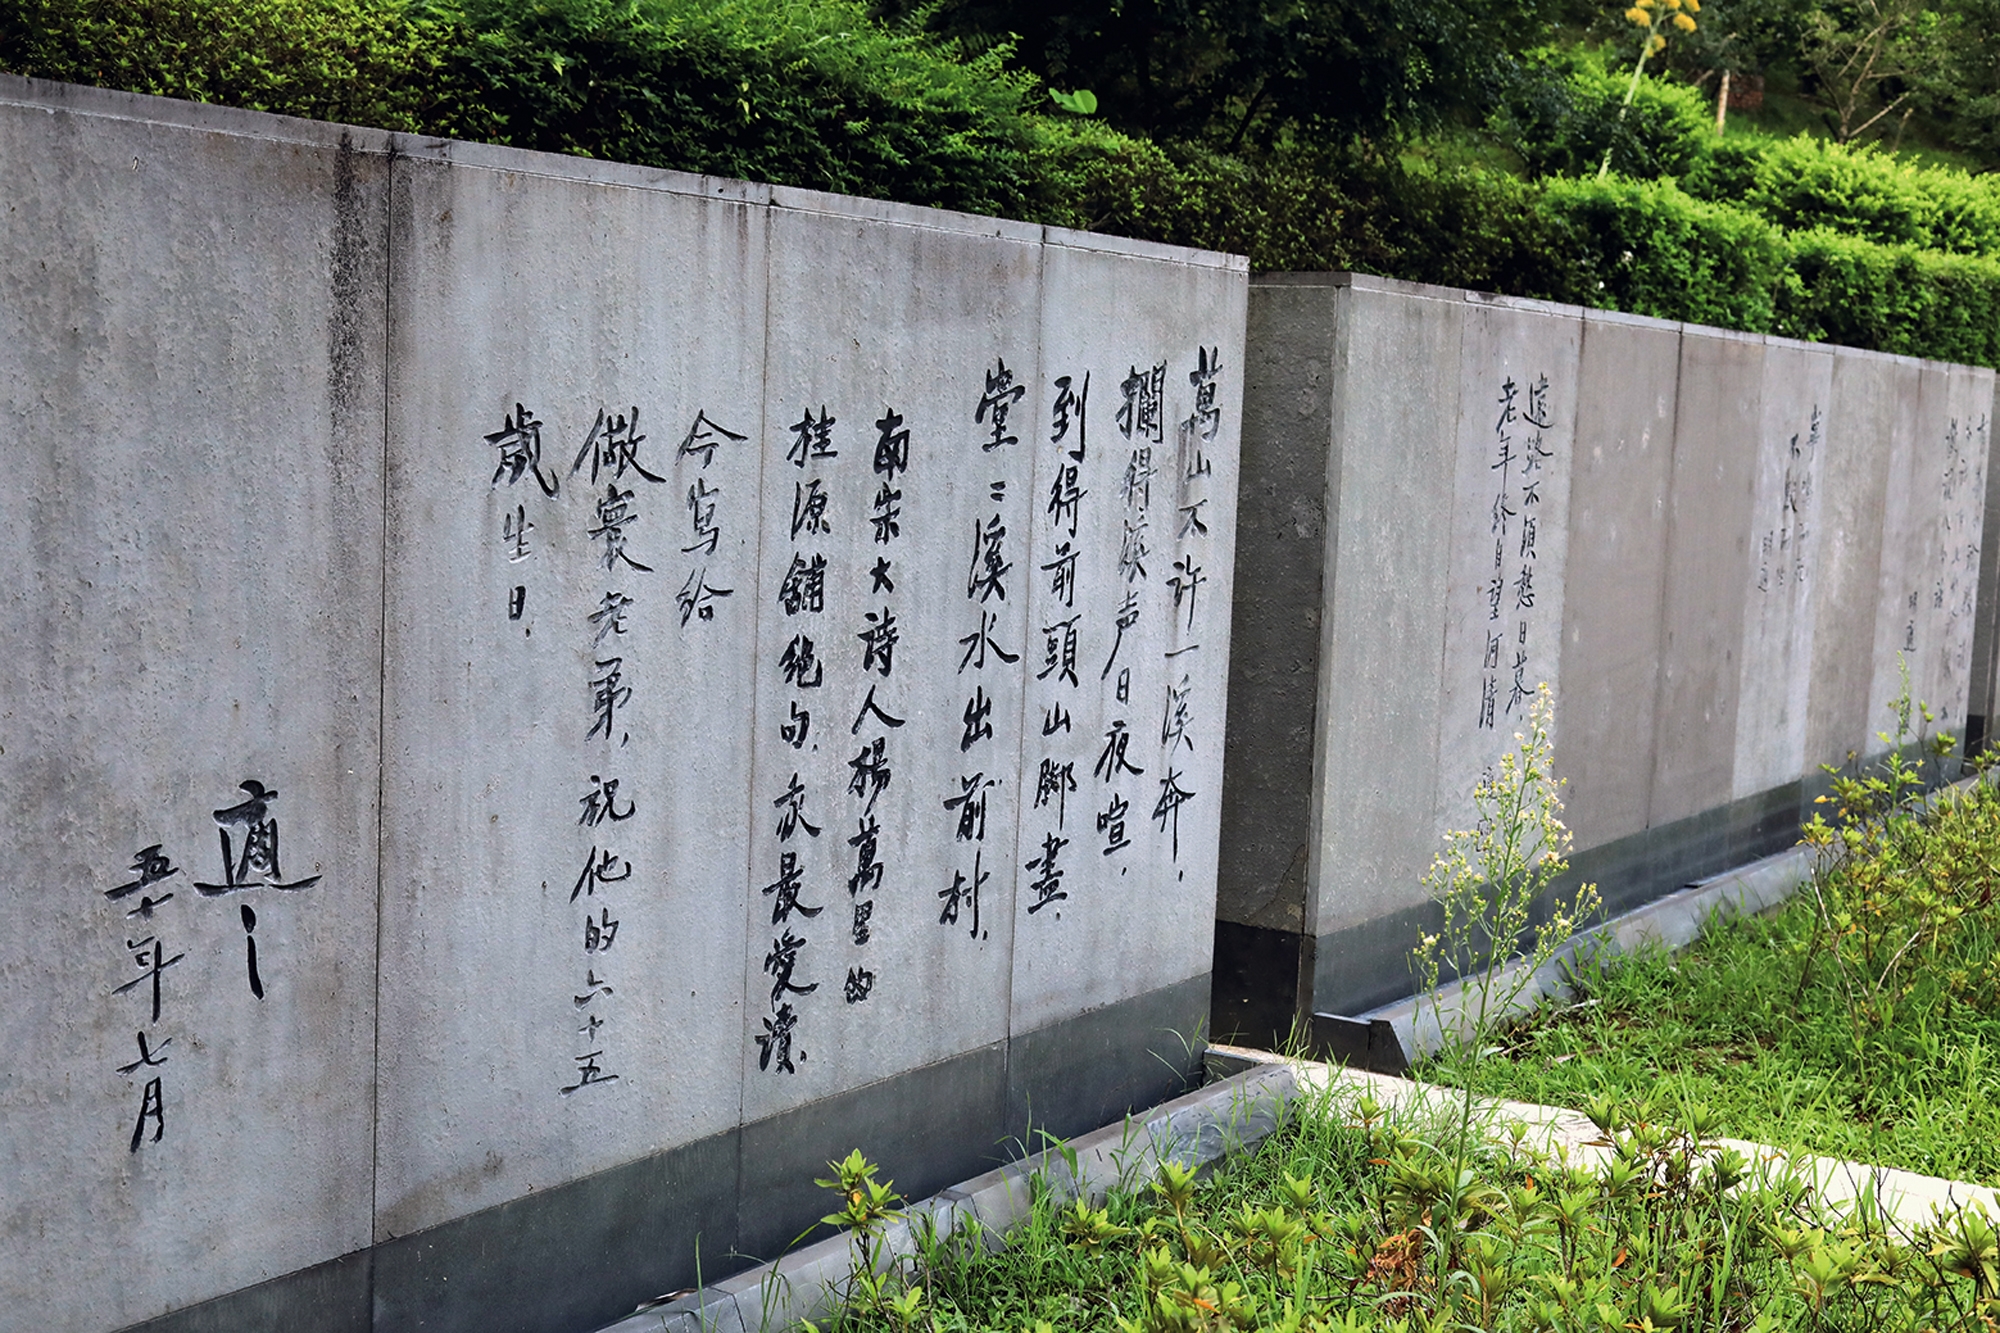 萬山不许一溪奔，
攔得溪声日夜喧，
到得前頭山脚盡，
堂〻溪水出前村．
南宋大詩人楊萬里的
桂源舖絶句，我最愛讀，
今寫給
儆寰老弟，祝他的六十五
歲生日．
適之
五十年七月
遠路不須愁日暮，
老年終自望河清